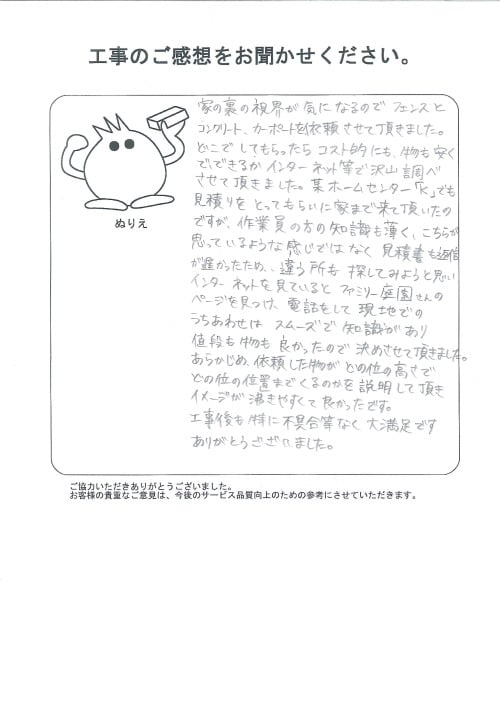 工事のご感想をお聞かせください。
家の裏の視界が気になるのでフェンスと
コンクリート、カーポートを依頼させて頂きました。
どこでしてもらったらコスト的にも、物も安く
できるかインターネット等で沢山調べ
させて頂きました。某ホームセンター「K」でも
見積りをとってもらいに家まで来て頂いたの
ですが、作業員の方の知識も薄く、こちらが
思っているような感じではなく見積書も返信
が遅かったため、違う所も探してみようと思い
インターネットを見ているとファミリー庭園さんの
ページを見つけ、電話をして現地での
うちあわせはスムーズで知識があり
値段も物も良かったので決めさせて頂きました。
あらかじめ、依頼した物がどの位の高さで
どの位の位置までくるのかを説明して頂き
イメージが沸きやすくて良かったです。
工事後も特に不具合等なく大満足です
ありがとうございました。
ぬりえ
ご協力いただきありがとうございました。
お客様の貴重なご意見は、今後のサービス品質向上のための参考にさせていただきます。